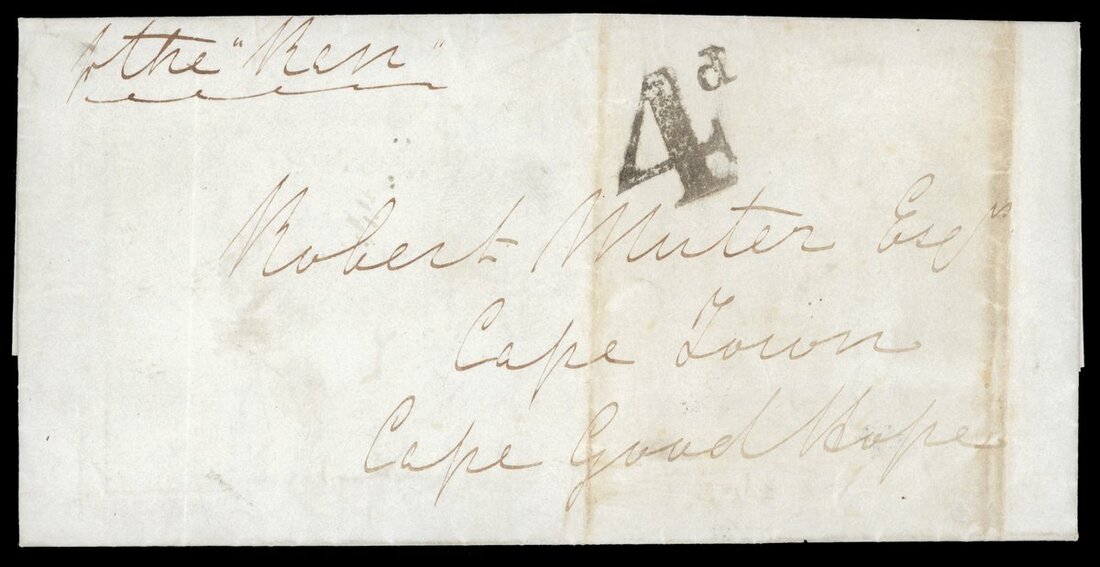 p the "Ken"
4d
Robert Muter Esqr.
Cape Town
Cape Good Hope